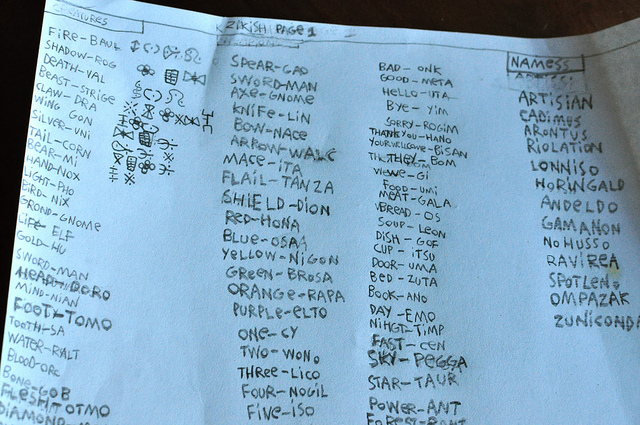 ZIKISH PAGE 1
FIRE-BALL
SHADOW-ROG
DEATH-VAL
BEAST-STRIGE
CLAW-DRA
WING GON
SILVER-UNI
TAIL-CORN
BEAR-MI
HAND-NOX
LIGHT-PHO
BIRD-NIX
GROND-GNOME
LIFE ELF
GOLD-HU
SWORD-MAN
HEAD-DORO
MIND-NIAN
FOOTY-TOMO
TOOTH-SA
WATER-RALT
BLOOD-ORC
BONE-GOB
FLESH TOTMO
DIAMOND-
SPEAR-GAD
SWORD-MAN
AXE-GNOME
KNIFE-LIN
BOW-NACE
ARROW-WALC
MACE-ITA
FLAIL-TANZA
SHIELD-DION
RED-HONA
BLUE-OSAA
YELLOW-NIGON
GREEN-BROSA
ORANGE-RAPA
PURPLE-ELTO
ONE-CY
TWO-WONO
THREE-LICO
FOUR-NOGIL
FIVE-ISO
BAD-ONK
GOOD-META
HELLO-UTA
BYE-YIM
SORRY-ROGIM
THANKYOU-HANO
YOURWELCOVE-BISAN
THEY-BOM
VIEWE-GI
FOOD-UMI
MEAT-GALA
BREAD-OS
SOUP-LEON
DISH-GOF
CUP-ITSU
DOOR-UMA
BED-ZUTA
BOOK-ANO
DAY-EMO
NIHGT-TIMP
FAST-CEN
SKY-PEGGA
STAR-TAUR
POWER-ANT
NAMESS
ARTISIAN
CADIMUS
ARONTUS
RIOLATION
LONNISO
HORINGALD
ANDELDO
GAMANON
NOHUSSO
RAVIREA
SPOTLENO
OMPAZAK
ZUNICONDA